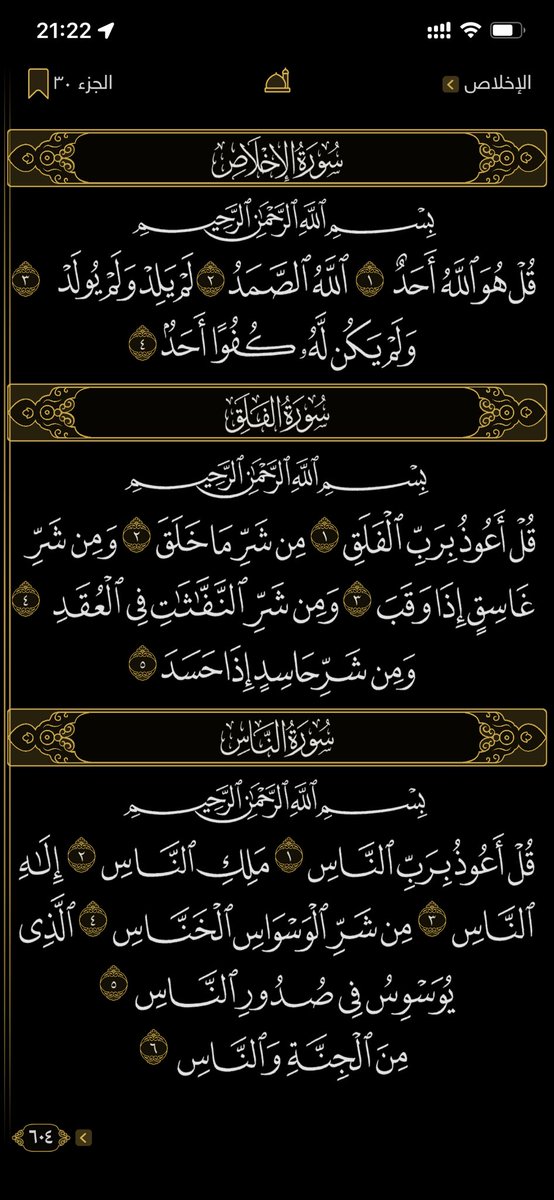 21:22
الإخلاص
الجزء ٣٠
سُورَةُ الإِخْلَاصِ
بِسْمِ ٱللَّهِ ٱلرَّحْمَٰنِ ٱلرَّحِيمِ
قُلْ هُوَ ٱللَّهُ أَحَدٌ ١ ٱللَّهُ ٱلصَّمَدُ ٢ لَمْ يَلِدْ وَلَمْ يُولَدْ ٣
وَلَمْ يَكُن لَّهُۥ كُفُوًا أَحَدٌۢ ٤
سُورَةُ الفَلَقِ
بِسْمِ ٱللَّهِ ٱلرَّحْمَٰنِ ٱلرَّحِيمِ
قُلْ أَعُوذُ بِرَبِّ ٱلْفَلَقِ ١ مِن شَرِّ مَا خَلَقَ ٢ وَمِن شَرِّ
غَاسِقٍ إِذَا وَقَبَ ٣ وَمِن شَرِّ ٱلنَّفَّـٰثَـٰتِ فِى ٱلْعُقَدِ ٤
وَمِن شَرِّ حَاسِدٍ إِذَا حَسَدَ ٥
سُورَةُ النَّاسِ
بِسْمِ ٱللَّهِ ٱلرَّحْمَٰنِ ٱلرَّحِيمِ
قُلْ أَعُوذُ بِرَبِّ ٱلنَّاسِ ١ مَلِكِ ٱلنَّاسِ ٢ إِلَـٰهِ
ٱلنَّاسِ ٣ مِن شَرِّ ٱلْوَسْوَاسِ ٱلْخَنَّاسِ ٤ ٱلَّذِى
يُوَسْوِسُ فِى صُدُورِ ٱلنَّاسِ ٥
مِنَ ٱلْجِنَّةِ وَٱلنَّاسِ ٦
٦٠٤